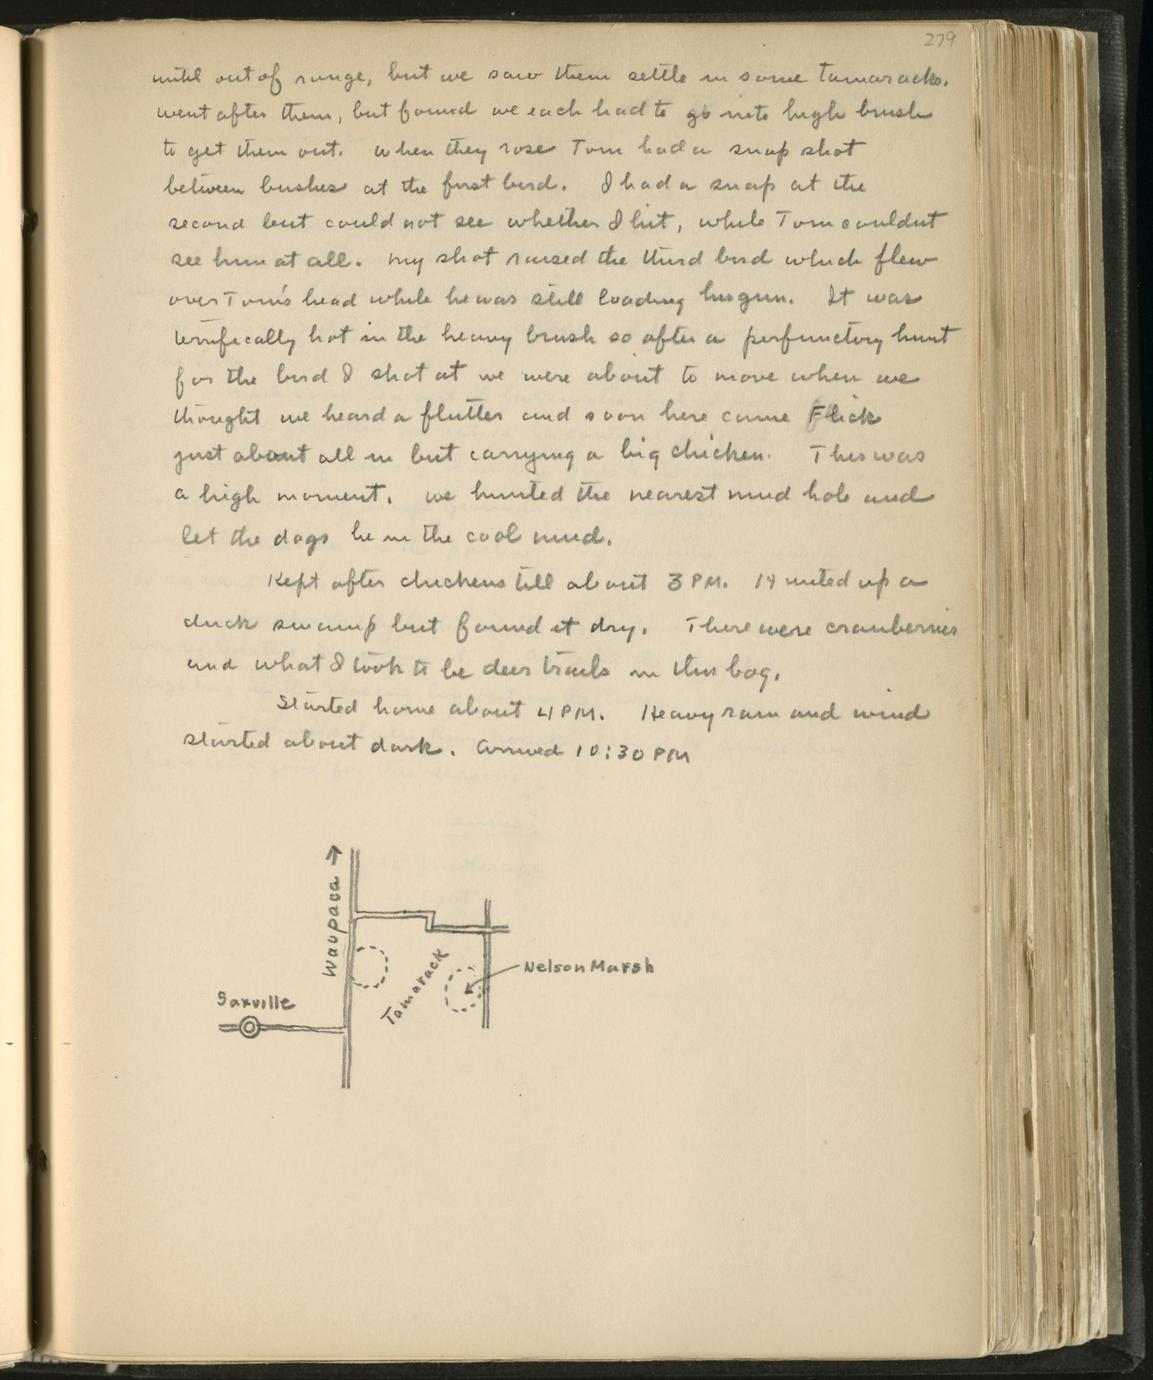 279
until out of range, but we saw them settle in some tamaracks.
Went after them, but found we each had to go into high brush
to get them out. When they rose Tom had a snap shot
between bushes at the first bird. I had a snap at the
second but could not see whether I hit, while Tom couldnt
see him at all. My shot raised the third bird which flew
over Tom's head while he was still loading his gun. It was
terrifically hot in the heavy brush so after a perfunctory hunt
for the bird I shot at we were about to move when we
thought we heard a flutter and soon here came Flick
just about all in but carrying a big chicken. This was
a high moment. We hunted the nearest mud hole and
let the dogs lie in the cool mud.
Kept after chickens till about 3 PM. Hunted up a
duck swamp but found it dry. There were cranberries
and what I took to be deer trails in this bog.
Started home about 4 PM. Heavy rain and wind
started about dark. Arrived 10:30 PM
Waupaca →
Nelson Marsh
Tamarack
Saxville